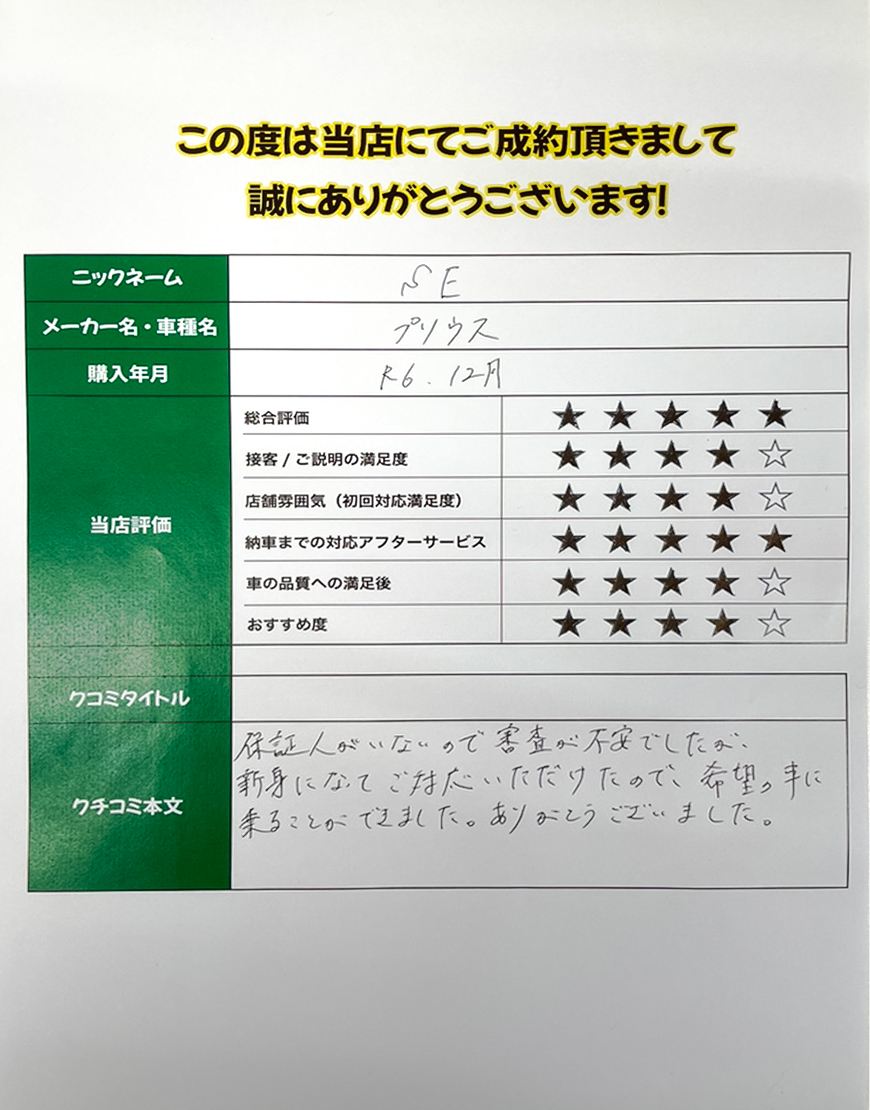 この度は当店にてご成約頂きまして
誠にありがとうございます!
ニックネーム SE
メーカー名・車種名 プリウス
購入年月 R6.12月
当店評価
総合評価 ★★★★★
接客/ご説明の満足度 ★★★★☆
店舗雰囲気（初回対応満足度） ★★★★☆
納車までの対応アフターサービス ★★★★★
車の品質への満足後 ★★★★☆
おすすめ度 ★★★★☆
クコミタイトル
クチコミ本文
保証人がいないので審査が不安でしたが、
親身になってご対応いただけたので、希望の車に
乗ることができました。ありがとうございました。